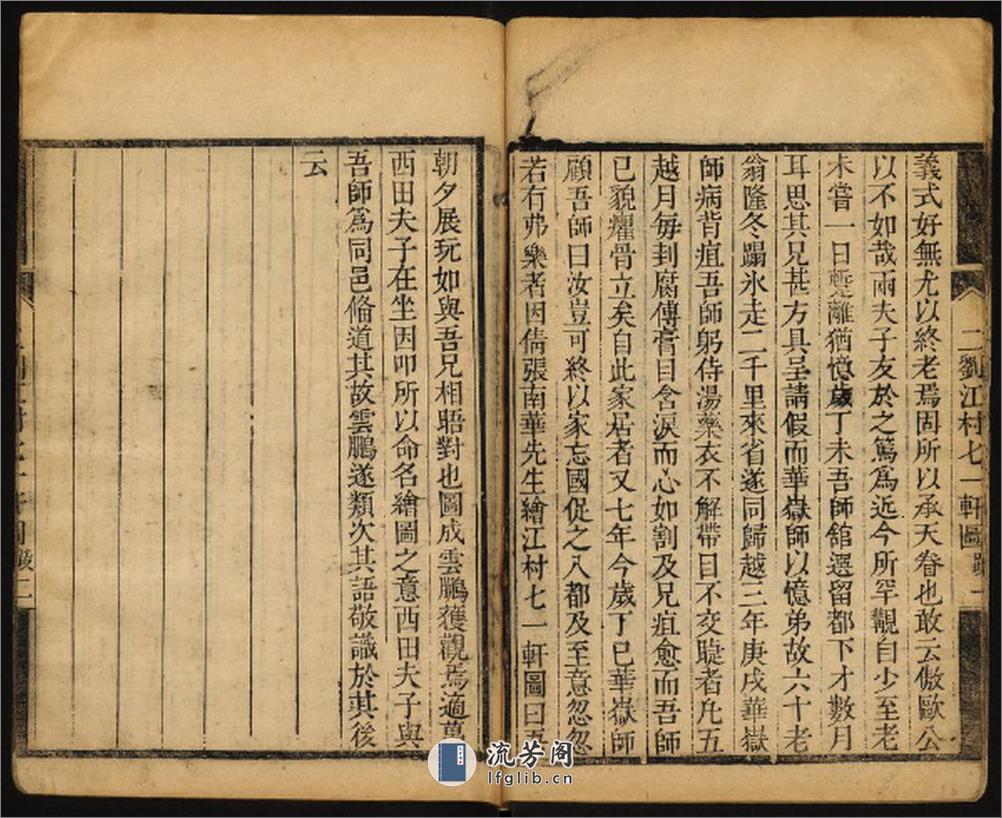 二劉江村七一軒圖跋 一
義式好無尤以終老焉固所以承天眷也敢云倣歐公
以不如哉兩夫子友於之篤爲近今所罕觀自少至老
未嘗一日蹔離猶憶歲丁未吾師舘選留都下才數月
耳思其兄甚方具呈請假而華嶽師以憶弟故六十老
翁隆冬蹋氷走二千里來省遂同歸越三年庚戌華嶽
師病背疽吾師躬侍湯藥衣不解帶目不交睫者凡五
越月每刲腐傅膏目含淚而心如割及兄疽愈而吾師
已貌癯骨立矣自此家居者又七年今歲丁巳華嶽師
顧吾師曰汝豈可終以家忘國促之入都及至意忽忽
若有弗樂者因倩張南華先生繪江村七一軒圖曰吾
朝夕展玩如與吾兄相晤對也圖成雲鵬獲觀焉適萬
西田夫子在坐因叩所以命名繪圖之意西田夫子與
吾師爲同邑脩道其故雲鵬遂類次其語敬識於其後
云
跋 二
流芳阁
lfglib.cn